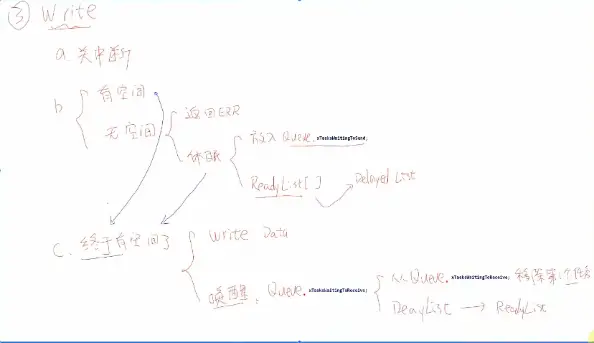 ③ Write
a. 关中断
b
有空间
无空间
返回ERR
休眠
放入 Queue. xTasksWaitingToSend;
ReadyList[ ]
Delayed List
c. 终于有空间了
Write Data
唤醒. Queue. xTasksWaitingToReceive;
从Queue. xTasksWaitingToReceive; 移除第1个任务
DelayList → ReadyList